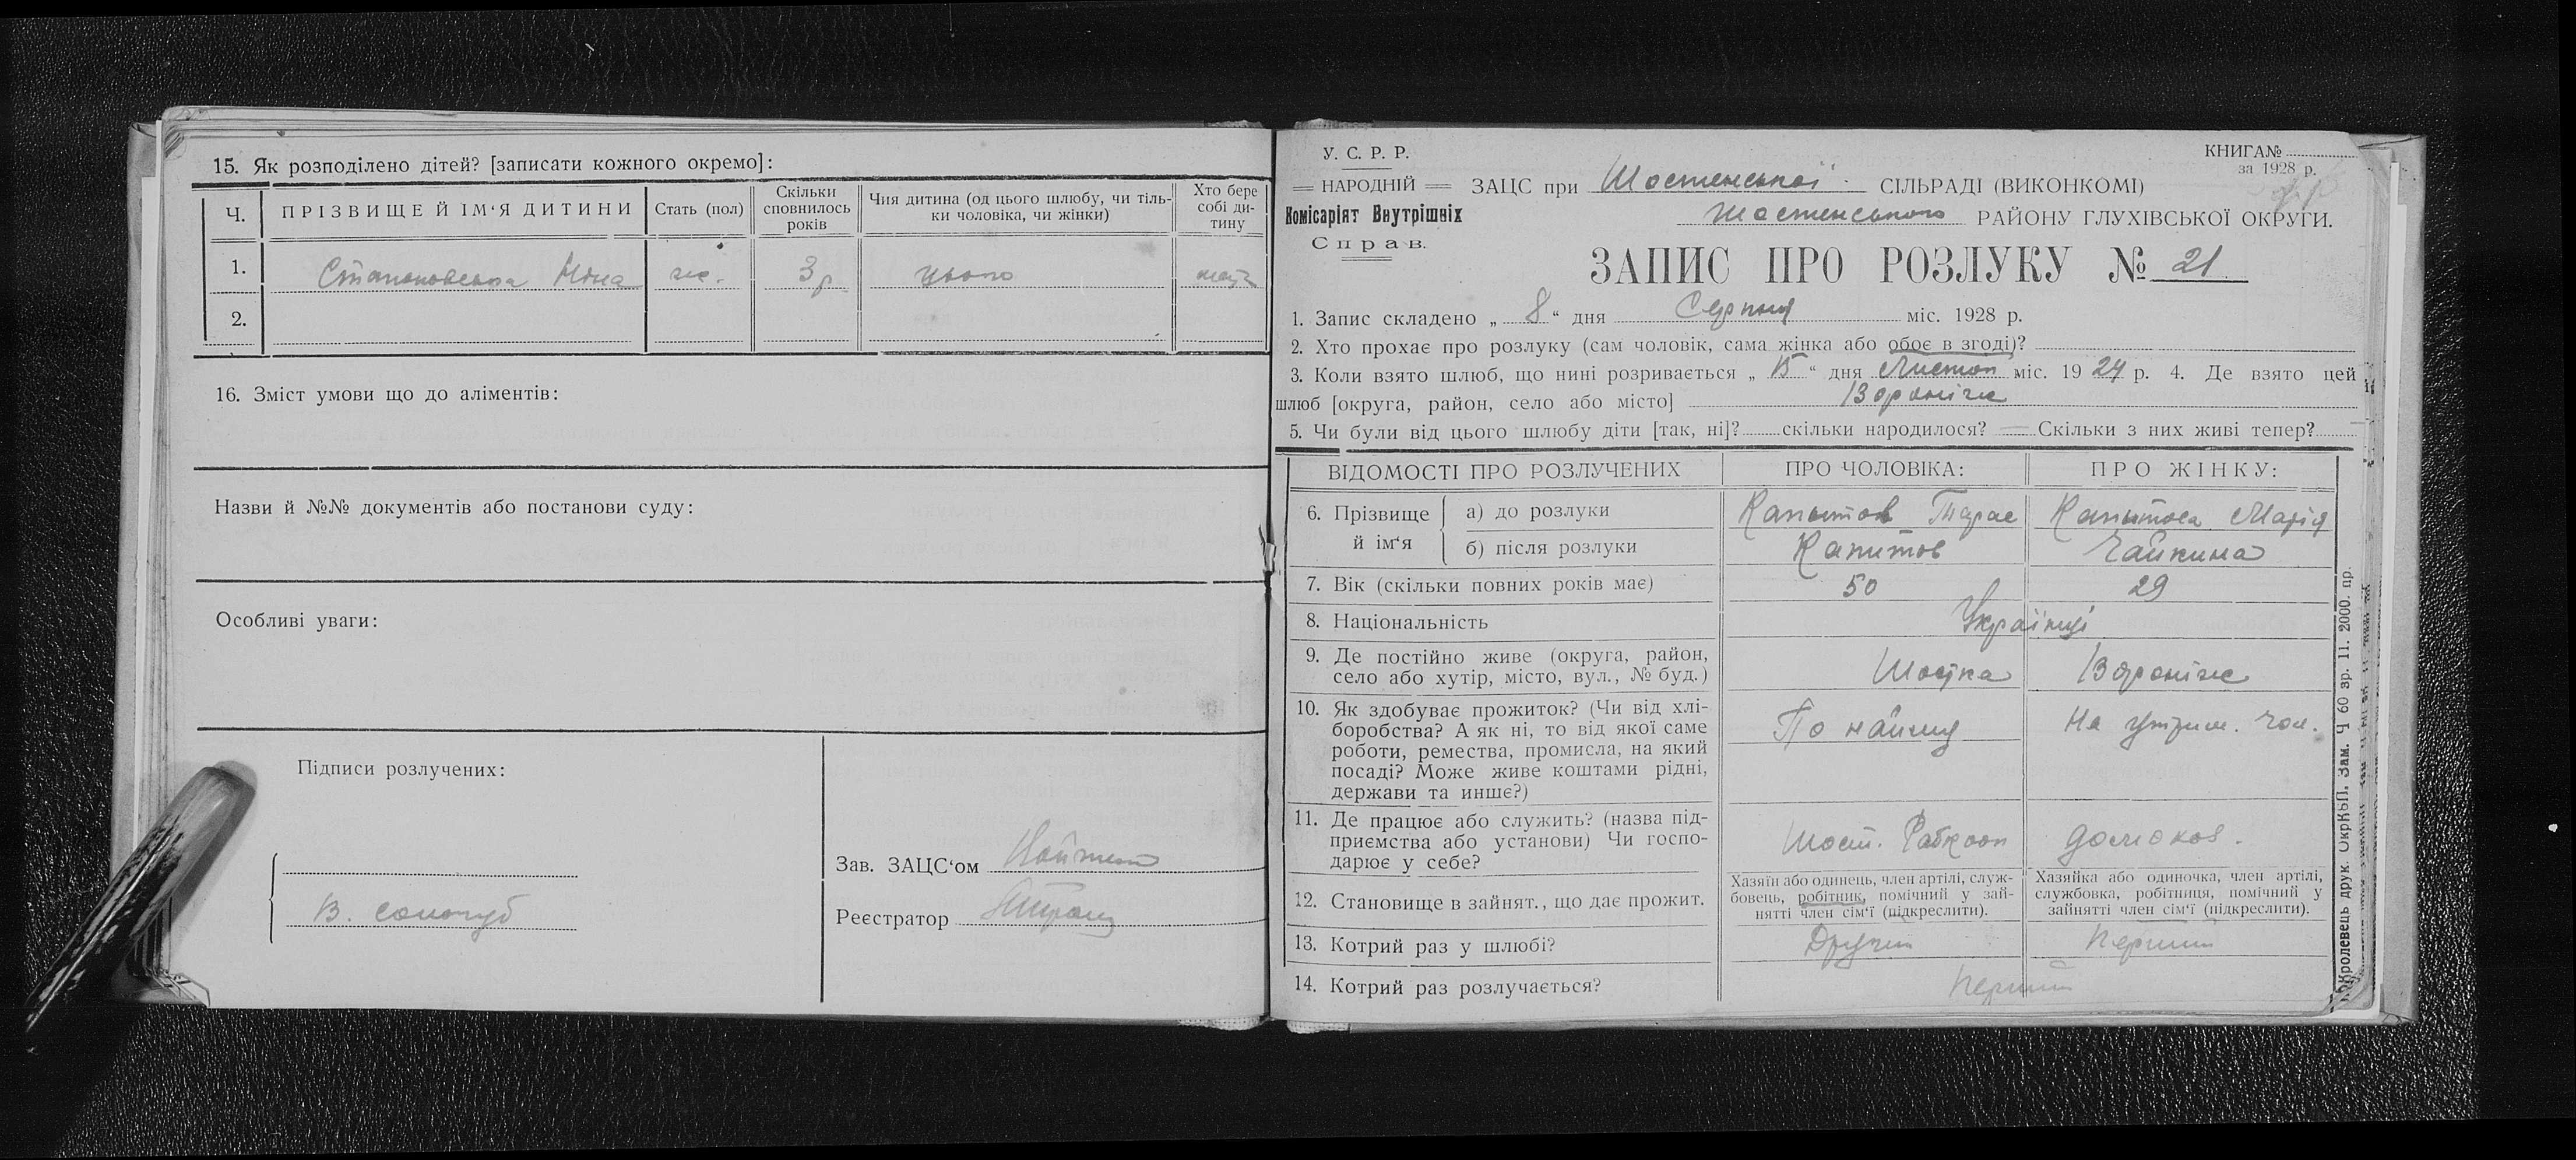 15. Як розподілено дітей? [записати кожного окремо]:
Ч. ПРІЗВИЩЕ Й ІМ‘Я ДИТИНИ Стать (пол) Скільки сповнилось років Чия дитина (од цього шлюбу, чи тіль-ки чоловіка, чи жінки) Хто бере собі ди-тину
1. Ніна 3 р цього
2.
16. Зміст умови що до аліментів:
Назви й №№ документів або постанови суду:
Особливі уваги:
Підписи розлучених:
В. сологуб
Зав. ЗАЦС‘ом
Реєстратор
У. С. Р. Р.
НАРОДНІЙ
Комісаріят Внутрішніх
Справ.
КНИГА№
за 1928 р.
ЗАЦС при Шостенської СІЛЬРАДІ (ВИКОНКОМІ)
Шостенського РАЙОНУ ГЛУХІВСЬКОЇ ОКРУГИ.
ЗАПИС ПРО РОЗЛУКУ № 21
1. Запис складено „ 8 “ дня Серпня міс. 1928 р.
2. Хто прохає про розлуку (сам чоловік, сама жінка або обоє в згоді)?
3. Коли взято шлюб, що нині розривається „ “ дня Листоп міс. 19 24 р. 4. Де взято цей
шлюб [округа, район, село або місто] Вороніж
5. Чи були від цього шлюбу діти [так, ні]? скільки народилося? — Скільки з них живі тепер?
ВІДОМОСТІ ПРО РОЗЛУЧЕНИХ ПРО ЧОЛОВІКА: ПРО ЖІНКУ:
6. Прізвище й ім‘я а) до розлуки Капытов Тарас Капытова Марія
б) після розлуки Капитов Чайкина
7. Вік (скільки повних років має) 50 29
8. Національність Українці
9. Де постійно живе (округа, район,
село або хутір, місто, вул., № буд.) Шостка Вороніж
10. Як здобуває прожиток? (Чи від хлі-
боробства? А як ні, то від якої саме
роботи, ремества, промисла, на який
посаді? Може живе коштами рідні,
держави та инше?) По найму На утрим. чол.
11. Де працює або служить? (назва під-
приємства або установи) Чи госпо-
дарює у себе? Шост. Рабкооп домохоз.
12. Становище в зайнят., що дає прожит.
Хазяїн або одинець, член артілі, служ-
бовець, робітник, помічний у зай-
нятті член сім‘ї (підкреслити).
Хазяйка або одиночка, член артілі,
службовка, робітниця, помічний у
зайнятті член сім‘ї (підкреслити).
13. Котрий раз у шлюбі? Другий Перший
14. Котрий раз розлучається? Перший
Кролевець друк. ОкрКВП. Зам. Ч 60 зр. 11. 2000. пр.